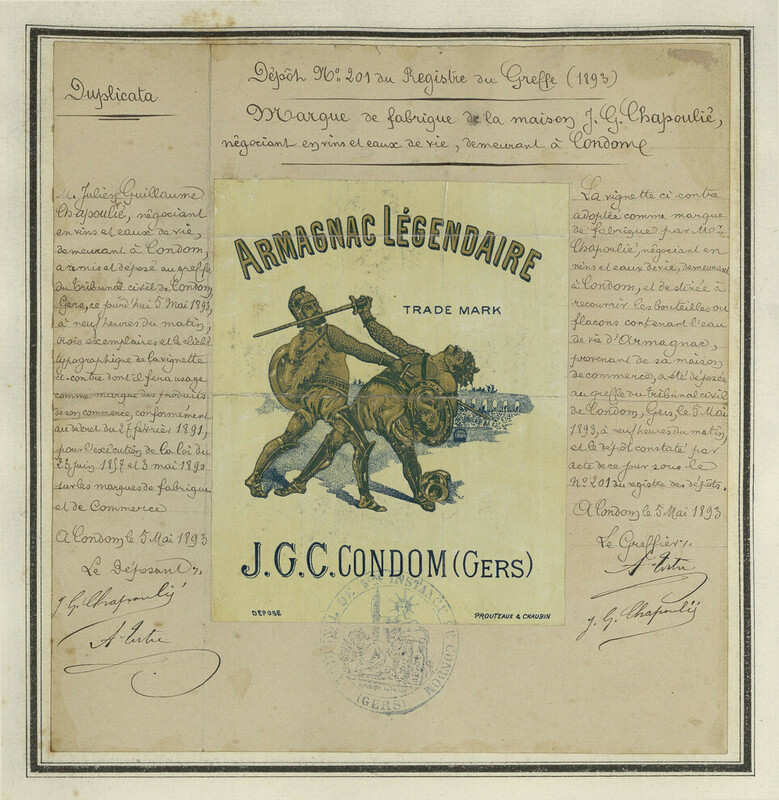 Duplicata
Dépôt No. 201 du Registre du Greffe (1893)
Marque de fabrique de la maison J. G. Chapoulié,
négociant en vins et eaux de vie, demeurant à Condom
M. Julien Guillaume
Chapoulié, négociant
en vins et eaux de vie,
demeurant à Condom,
a remis et déposé au greffe
du Tribunal civil de Condom
Gers, ce jourd'hui 5 Mai 1893,
à neuf heures du matin,
trois exemplaires et le cliché
typographique de la vignette
ci-contre dont il fera usage
comme marque des produits
de son commerce, conformément
au décret du 27 février 1891,
pour l'exécution de la loi du
23 juin 1857 et 3 mai 1890
sur les marques de fabrique
et de Commerce
A Condom le 5 Mai 1893
Le Déposant
J. G. Chapoulié
ARMAGNAC LÉGENDAIRE
TRADE MARK
J.G.C. CONDOM (GERS)
DEPOSE
PROUTEAUX & CHAUBIN
TRIBUNAL DE 1ERE INSTANCE DE CONDOM
(GERS)
La vignette ci-contre
adoptée comme marque
de fabrique par Mr.
Chapoulié, négociant en
vins et eaux de vie, demeurant
à Condom, et destinée à
recouvrir les bouteilles ou
flacons contenant l'eau
de vie d'Armagnac,
provenant de sa maison
de commerce, a été déposée
au greffe du Tribunal civil
de Condom, Gers, le 5 Mai
1893, à neuf heures du matin,
et le dépôt constaté par
acte de ce jour sous le
No. 201 du registre des dépôts.
A Condom le 5 Mai 1893
Le Greffier
J. G. Chapoulié